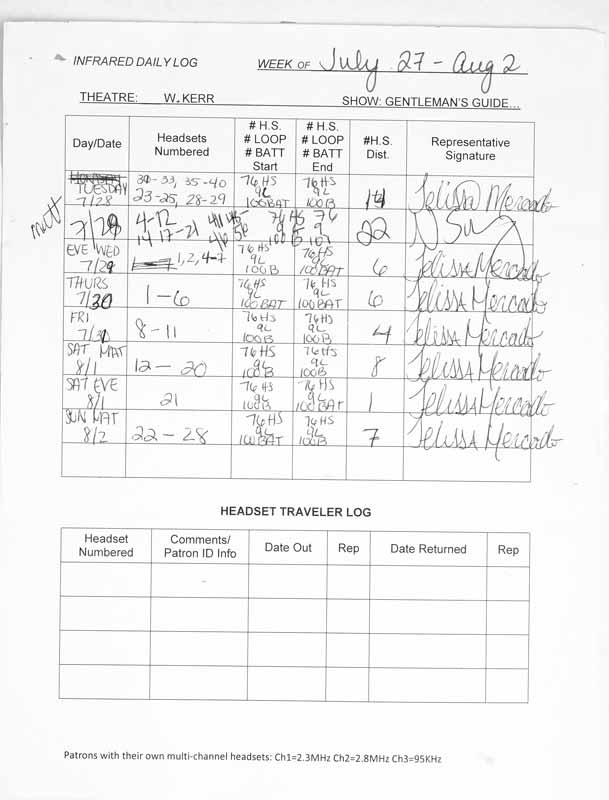 INFRARED DAILY LOG WEEK OF July 27 - Aug 2
THEATRE: W. KERR SHOW: GENTLEMAN'S GUIDE...
Day/Date Headsets Numbered # H.S. # LOOP # BATT Start # H.S. # LOOP # BATT End #H.S. Dist. Representative Signature
TUESDAY 7/28 30-33, 35-40 23-25, 28-29 76HS 9L 100BAT 76HS 9L 100B Jelissa Mercado
matt 7/29 4-12 14 17-21 76 HS 9 76 9 22
EVE WED 7/29 1, 2, 4-7 76HS 9L 100B 76HS 9L 100BAT 6 Jelissa Mercado
THURS 7/30 1-6 76HS 9L 100BAT 76HS 9L 100BAT 6 Jelissa Mercado
FRI 7/31 8-11 76HS 9L 100B 76HS 9L 100B 4 Jelissa Mercado
SAT MAT 8/1 12-20 76HS 9L 100B 76HS 9L 100B 8 Jelissa Mercado
SAT EVE 8/1 21 76HS 9L 100B 76HS 9L 100BAT 1 Jelissa Mercado
SUN MAT 8/2 22-28 76HS 9L 100BAT 76HS 9L 100B 7 Jelissa Mercado
HEADSET TRAVELER LOG
Headset Numbered Comments/ Patron ID Info Date Out Rep Date Returned Rep
Patrons with their own multi-channel headsets: Ch1=2.3MHz Ch2=2.8MHz Ch3=95KHz